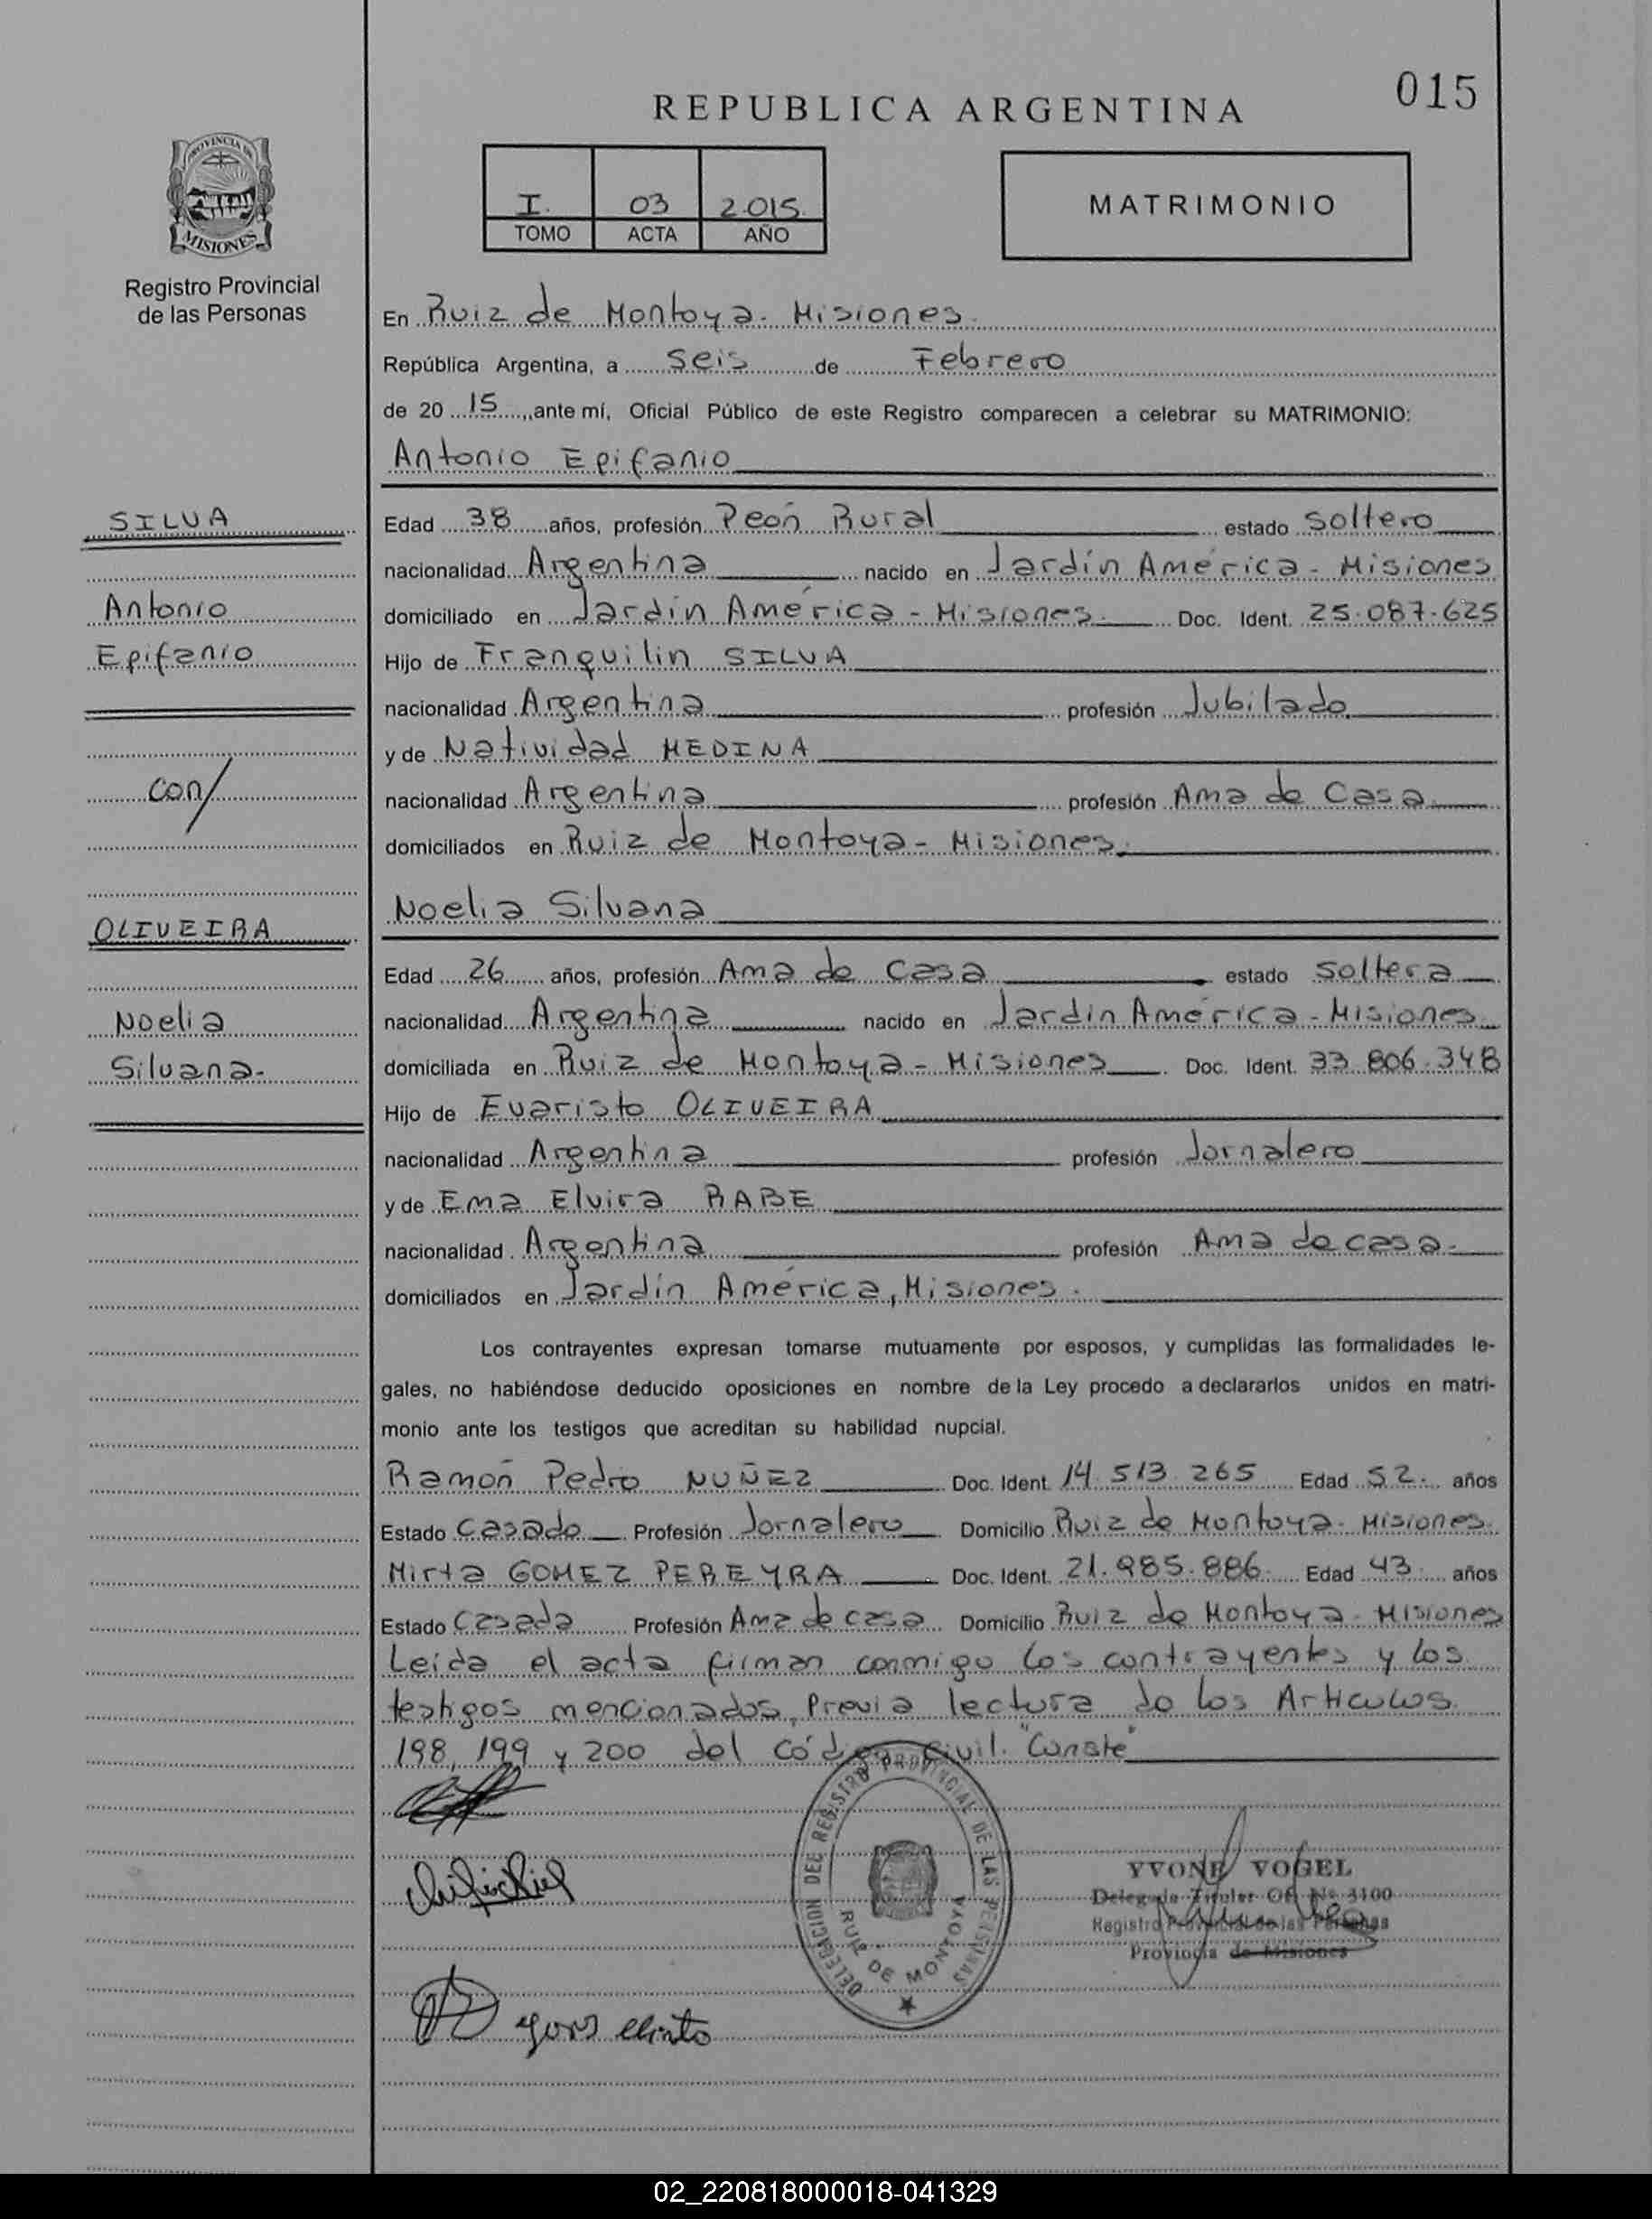 015
REPUBLICA ARGENTINA
PROVINCIA DE
MISIONES
Registro Provincial
de las Personas
I. 03 2.015.
TOMO ACTA AÑO
MATRIMONIO
En Ruiz de Montoya. Misiones.
República Argentina, a seis de Febrero
de 20 15, ante mí, Oficial Público de este Registro comparecen a celebrar su MATRIMONIO:
Antonio Epifanio
SILVA
Antonio
Epifanio
con/
OLIVEIRA
Noelia
Silvana.
Edad 38 años, profesión Peón Rural estado soltero
nacionalidad Argentina nacido en Jardín América - Misiones
domiciliado en Jardín América - Misiones. Doc. Ident. 25.087.625
Hijo de Franquilin SILVA
nacionalidad Argentina profesión Jubilado.
y de Natividad MEDINA
nacionalidad Argentina profesión Ama de Casa.
domiciliados en Ruiz de Montoya - Misiones.
Noelia Silvana
Edad 26 años, profesión Ama de Casa estado soltera
nacionalidad Argentina nacido en Jardín América - Misiones
domiciliada en Ruiz de Montoya - Misiones Doc. Ident. 33.806.348
Hijo de Evaristo OLIVEIRA
nacionalidad Argentina profesión Jornalero
y de Ema Elvira RABE
nacionalidad Argentina profesión Ama de casa.
domiciliados en Jardín América, Misiones.
Los contrayentes expresan tomarse mutuamente por esposos, y cumplidas las formalidades le-
gales, no habiéndose deducido oposiciones en nombre de la Ley procedo a declararlos unidos en matri-
monio ante los testigos que acreditan su habilidad nupcial.
Ramón Pedro NUÑEZ Doc. Ident. 14.513.265 Edad 52. años
Estado Casado Profesión Jornalero Domicilio Ruiz de Montoya. Misiones.
Mirta GOMEZ PEREYRA Doc. Ident. 21.985.886. Edad 43 años
Estado Casada Profesión Ama de casa Domicilio Ruiz de Montoya - Misiones
Leída el acta firman conmigo los contrayentes y los
testigos mencionados, Previa lectura de los Artículos
198, 199 y 200 del Código Civil. "Conste"
DELEGACION DEL REGISTRO PROVINCIAL DE LAS PERSONAS
RUIZ DE MONTOYA
YVONE VOGEL
Delegada Titular Ofi. Nº 3100
Registro Provincial de las Personas
Provincia de Misiones
02_220818000018-041329